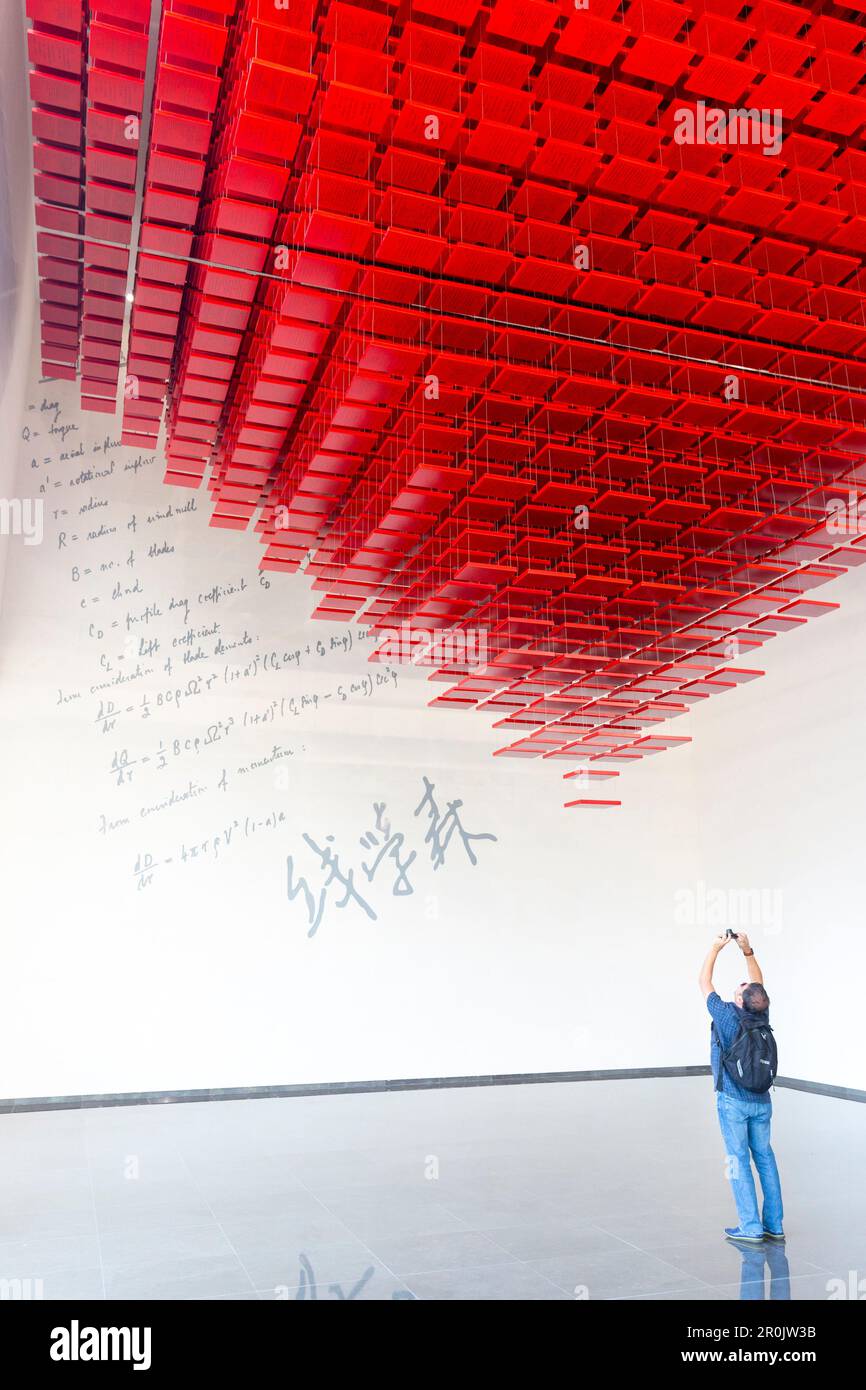 = drag
Q = torque
a = axial inflow
a' = rotational inflow
r = radius
R = radius of windmill
B = nr. of blades
c = chord
C_D = profile drag coefficient C_D
C_L = lift coefficient
from consideration of blade elements:
dD/dr = 1/2 B c ρ Ω² r² (1+a')² (C_L cos φ + C_D sin φ)
dQ/dr = 1/2 B c ρ Ω² r³ (1+a')² (C_L sin φ - C_D cos φ) sec² φ
From consideration of momentum:
dD/dr = 4π r ρ V² (1-a) a
钱学森
alamy
Image ID: 2R0JW3B
www.alamy.com